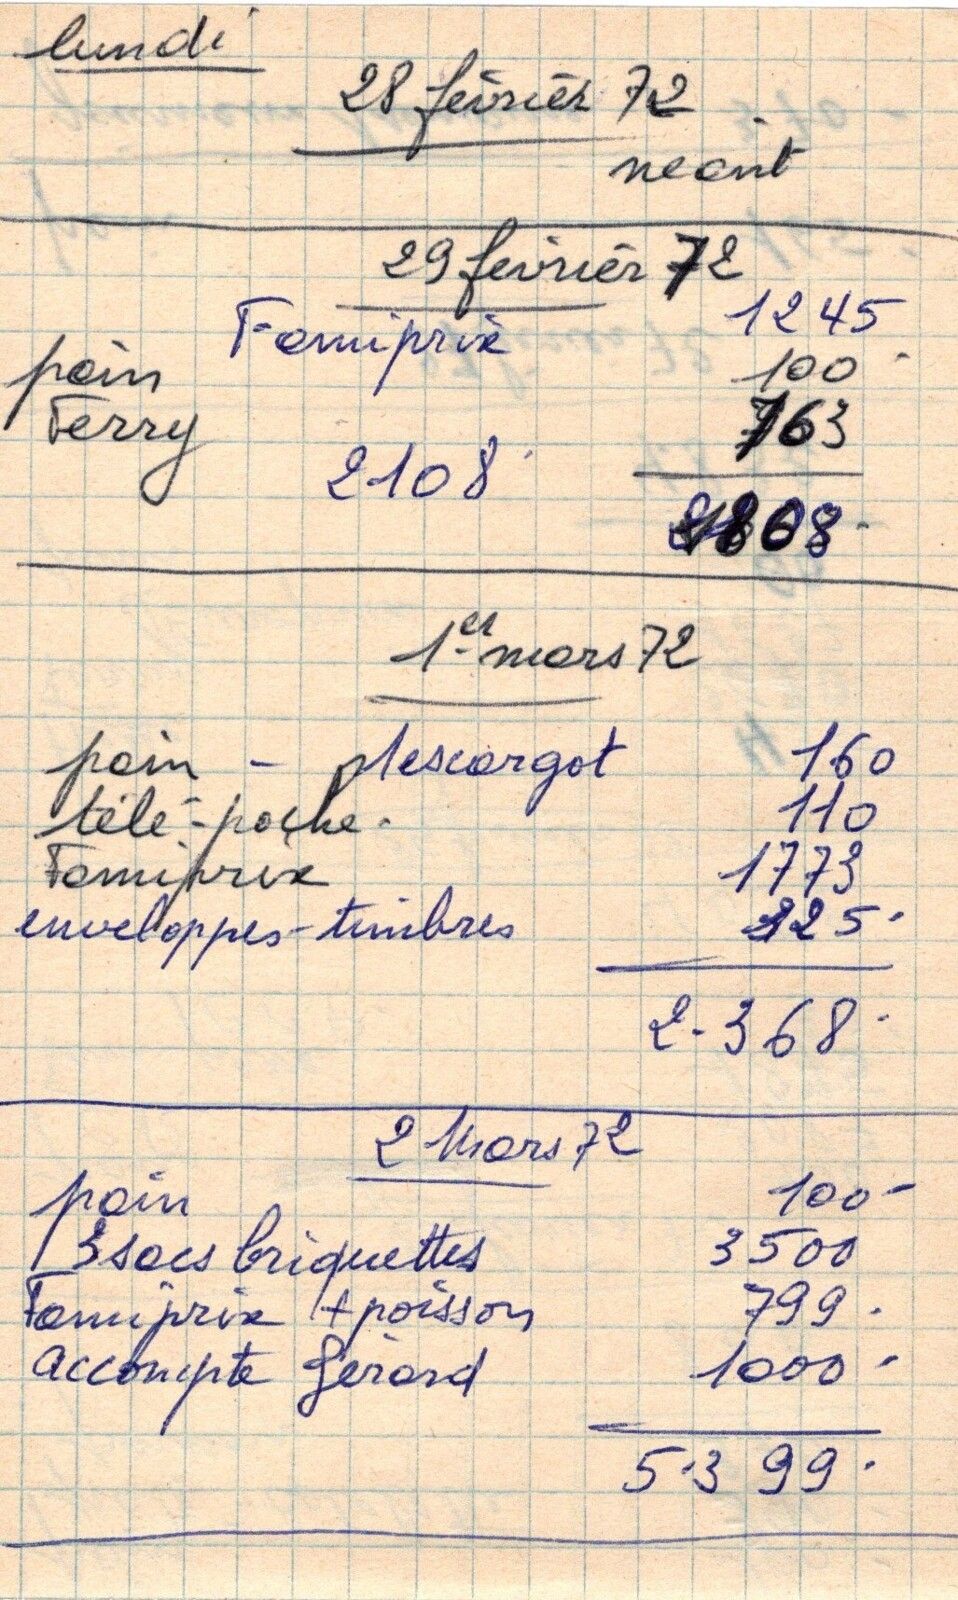 lundi
28 février 72
neant
29 février 72
Famiprix 1245
pain 100
Ferry 763
2108
2108
1er mars 72
pain - 1 escargot 160
télé-poche. 110
Famiprix 1773
enveloppes-timbres 325
2.368
2 Mars 72
pain 100-
3 sacs briquettes 3500
Famiprix + poisson 799.
accompte Gérard 1000-
5.399.